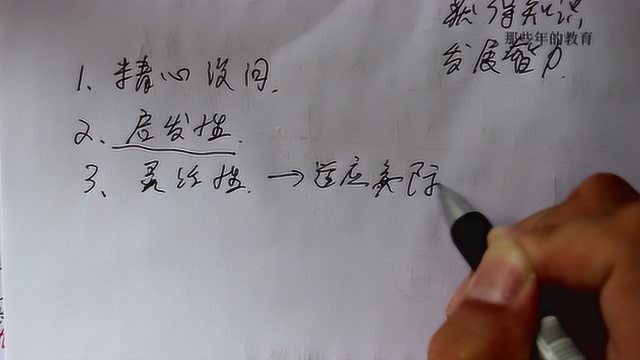 获得知识
那些年的教育
发展智力
1、精心设问.
2、启发性.
3、灵活性.→适应实际